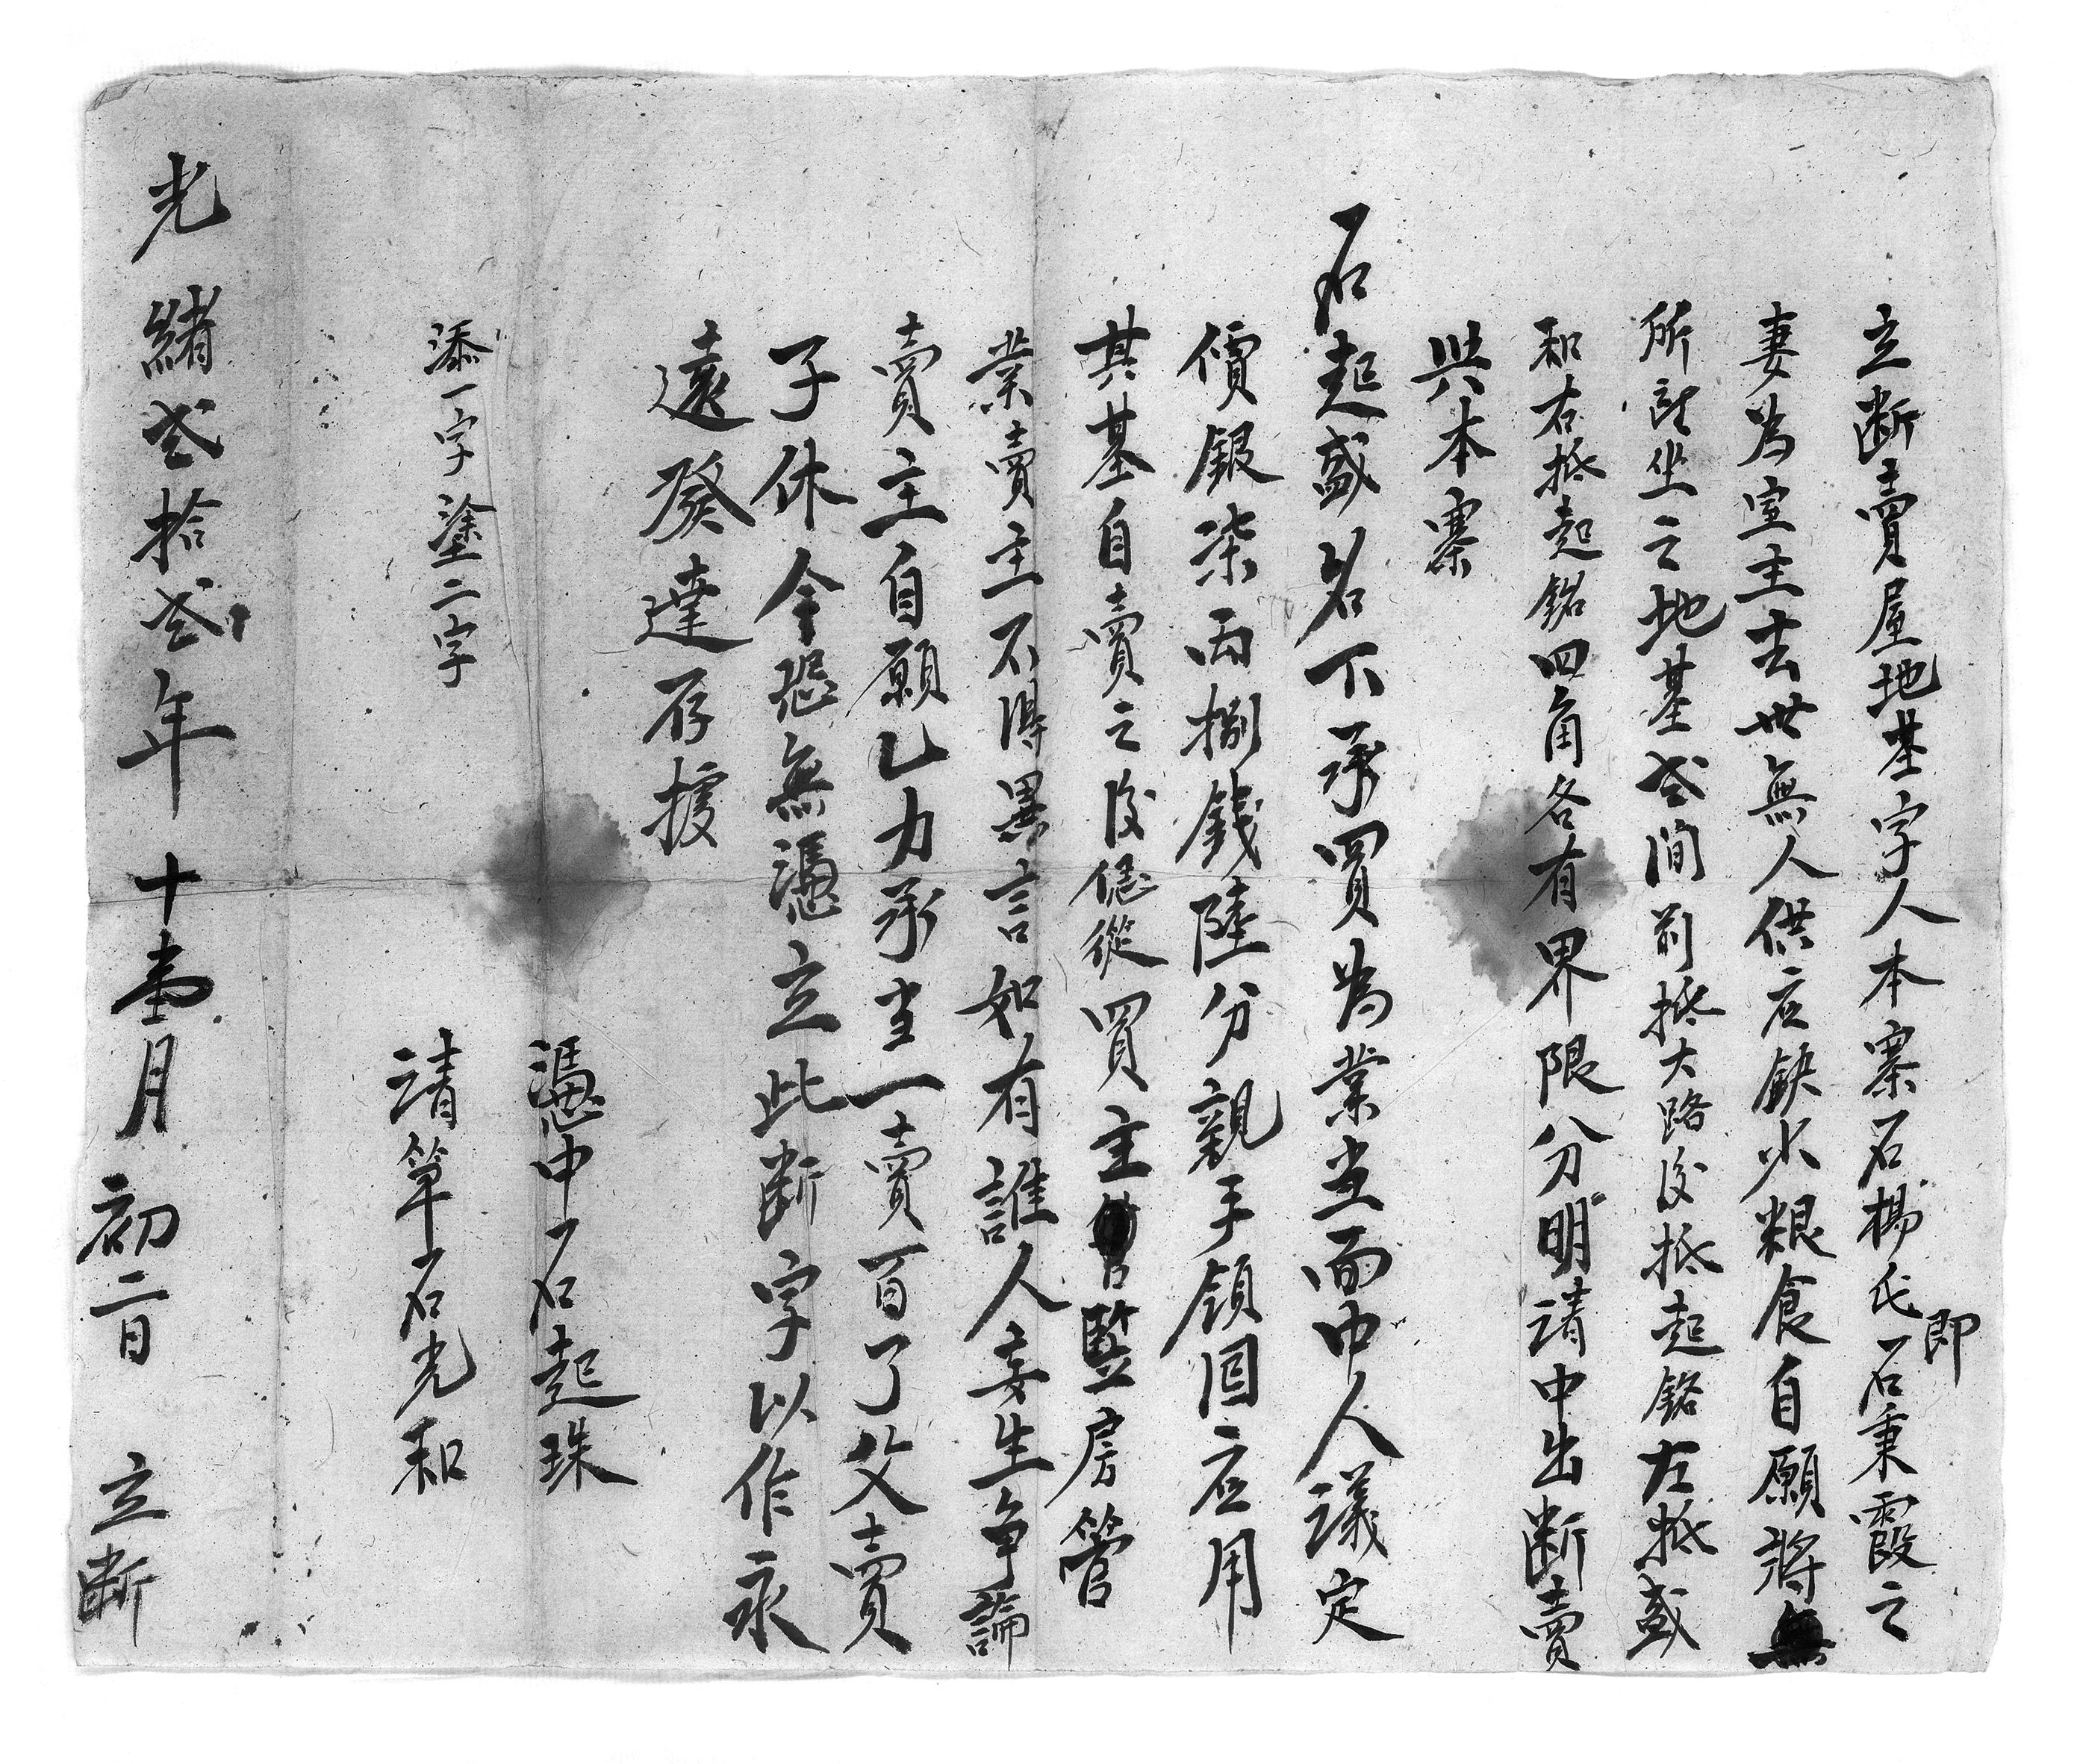 立断賣屋地基字人本寨石楊氏即石秉霞之
妻為室主去世無人供应缺少粮食自願將
所註坐之地基弍間前抵大路後抵起銘左抵盛
和右抵起銘四角各有界限分明請中出断賣
與本寨
石起盛名下承買為業当面中人議定
價銀柒両捌錢陸分親手領囬应用
其基自賣之後任從買主監房管
業賣主不得異言如有誰人妄生争論
賣主自願乙力承当一賣百了父賣
子休今恐無憑立此断字以作永
遠發達存據
憑中石起珠
添一字塗二字
請筆石光和
光緒弍拾弍年十壹月初二日立断